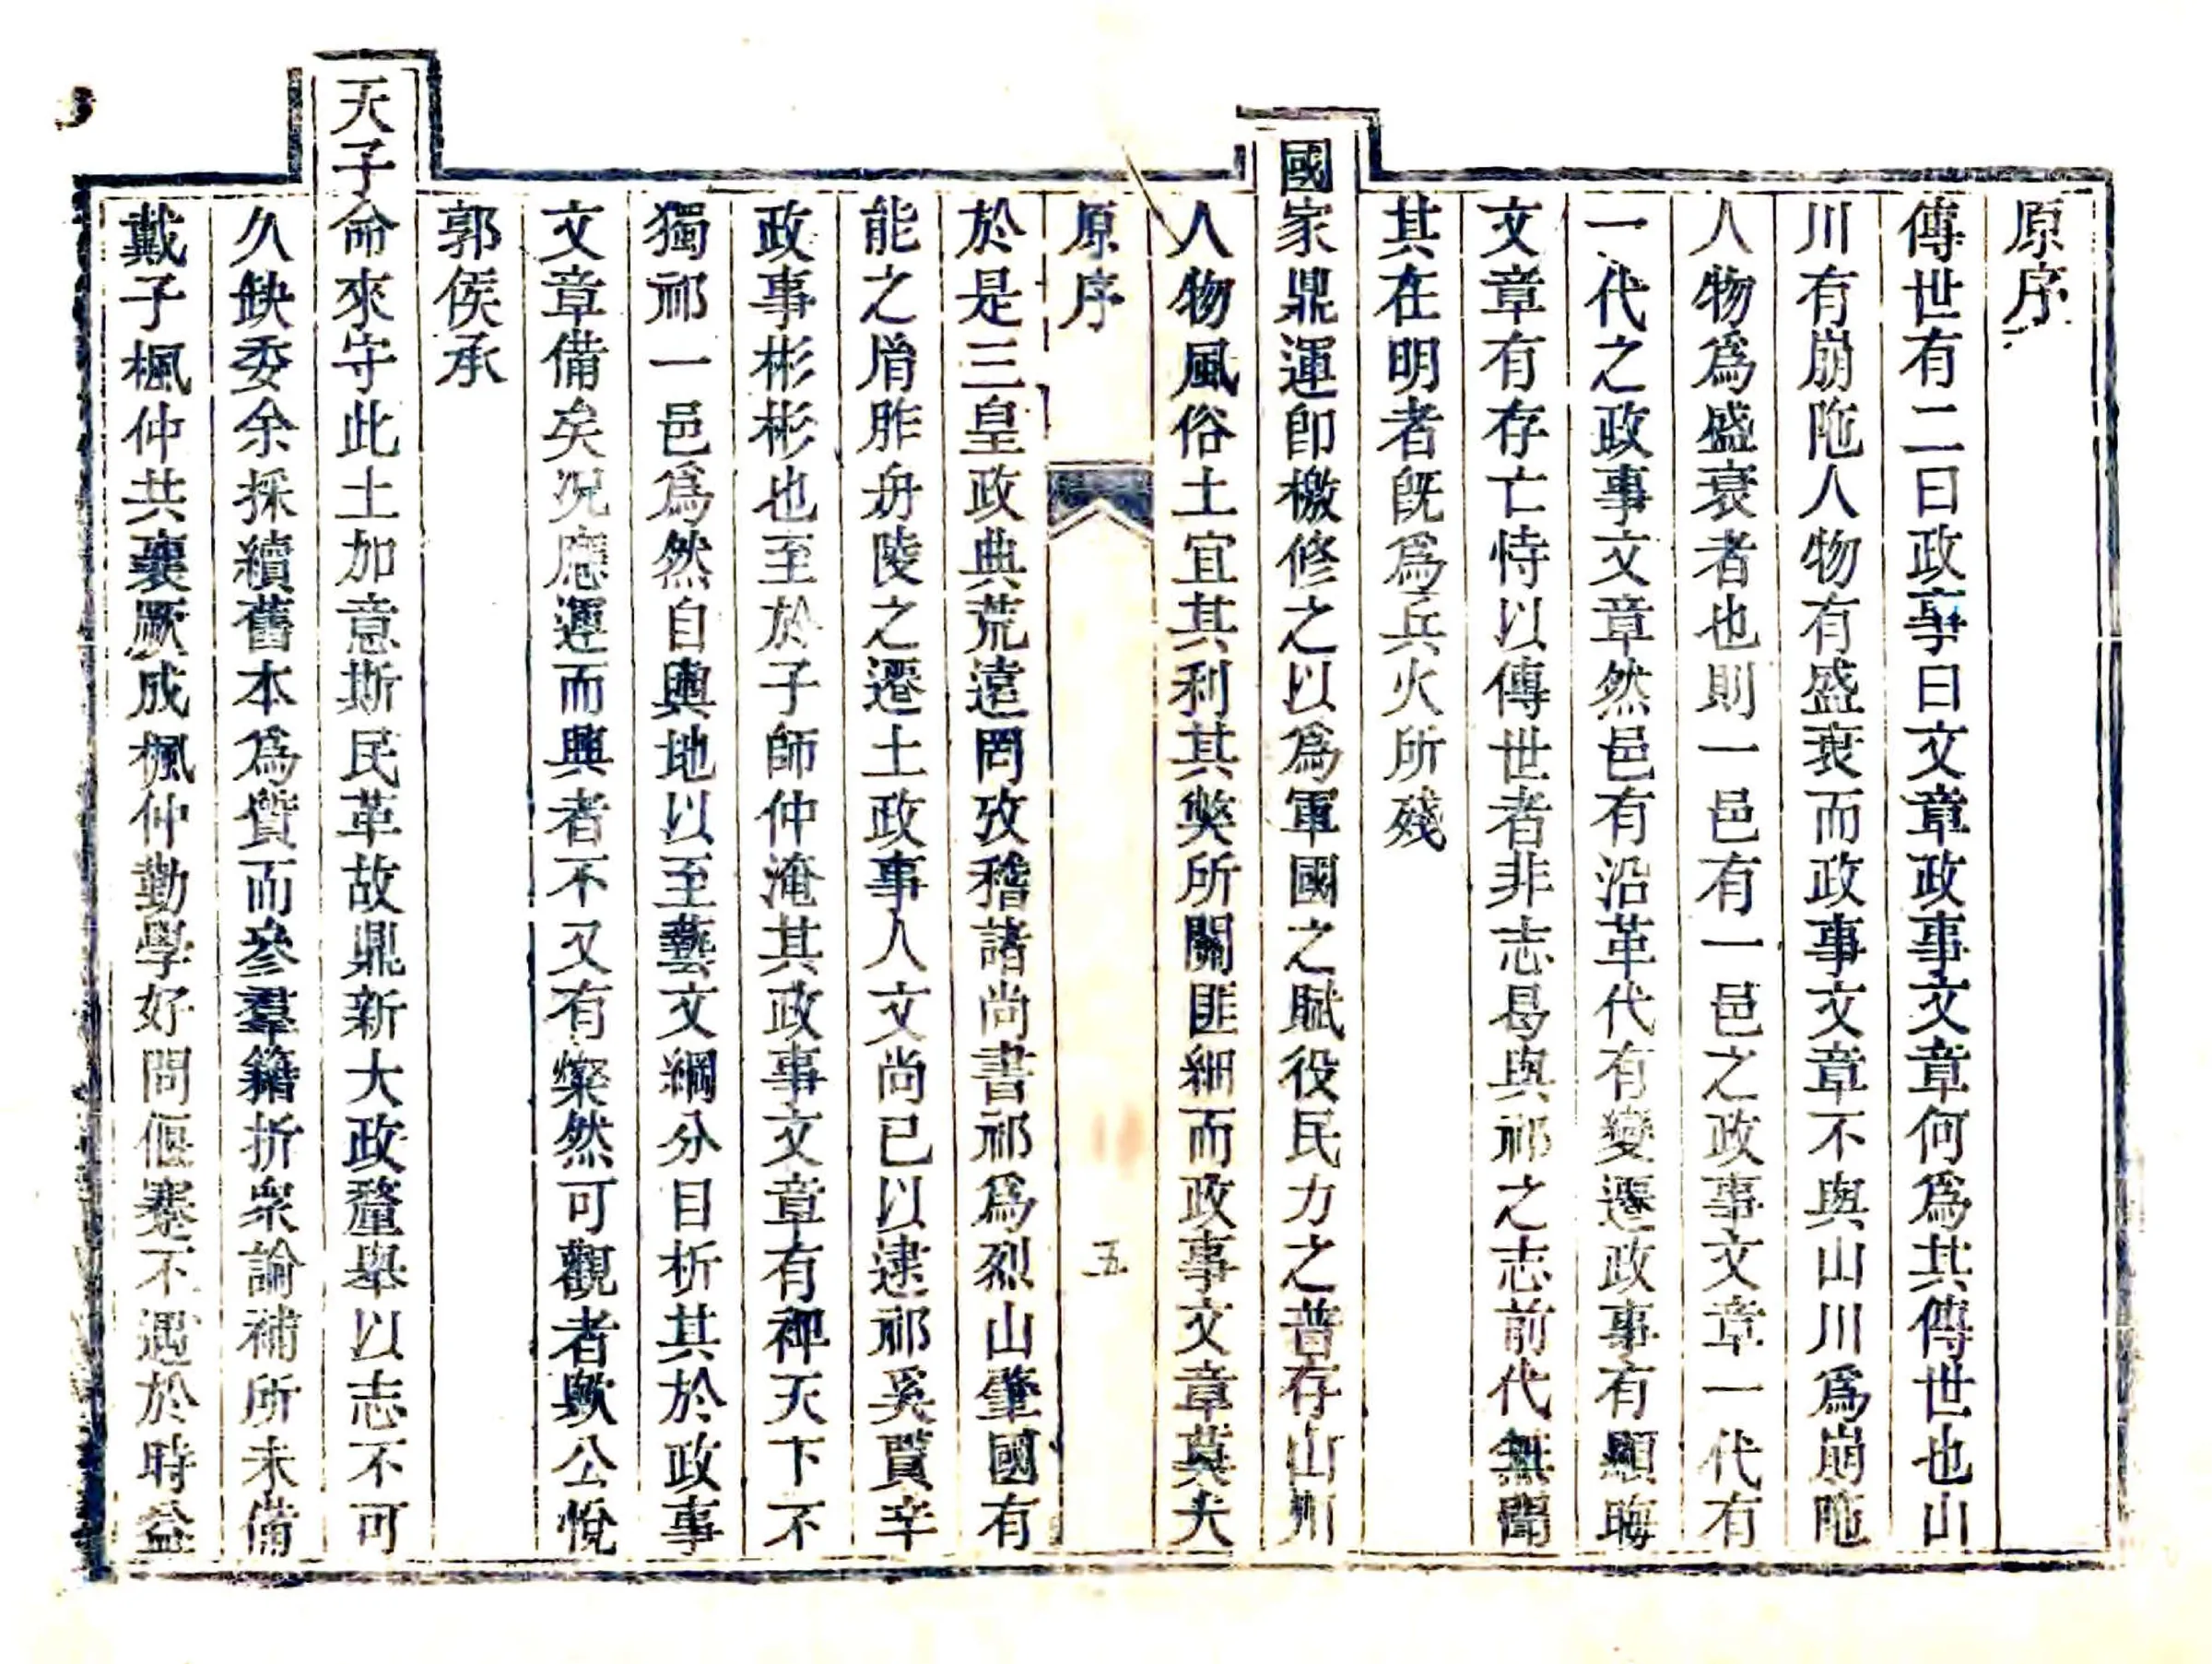 原序
傳世有二曰政事曰文章政事文章何爲其傳世也山
川有崩陁人物有盛衰而政事文章不與山川爲崩陁
人物爲盛衰者也則一邑有一邑之政事文章一代有
一代之政事文章然邑有沿革代有變遷政事有顯晦
文章有存亡恃以傳世者非志曷與祁之志前代無聞
其在明者旣爲兵火所殘
國家鼎運卽檄修之以爲軍國之賦役民力之普存山川
人物風俗土宜其利其獘所關匪細而政事文章莫大
原序
五
於是三皇政典荒遠罔攷稽諸尚書祁爲烈山肇國有
能之胙舟陵之遷土政事人文尚已以逮祁奚賢辛
政事彬彬也至於子師仲淹其政事文章有裨天下不
獨祁一邑爲然自輿地以至藝文綱分目析其於政事
文章備矣况應運而興者不又有燦然可觀者歟公悅
郭侯承
天子命來守此土加意斯民革故鼎新大政釐舉以志不可
久缺委余採續舊本爲質而參羣籍折衆論補所未備
戴子楓仲共襄厥成楓仲勤學好問偃蹇不遇於時益